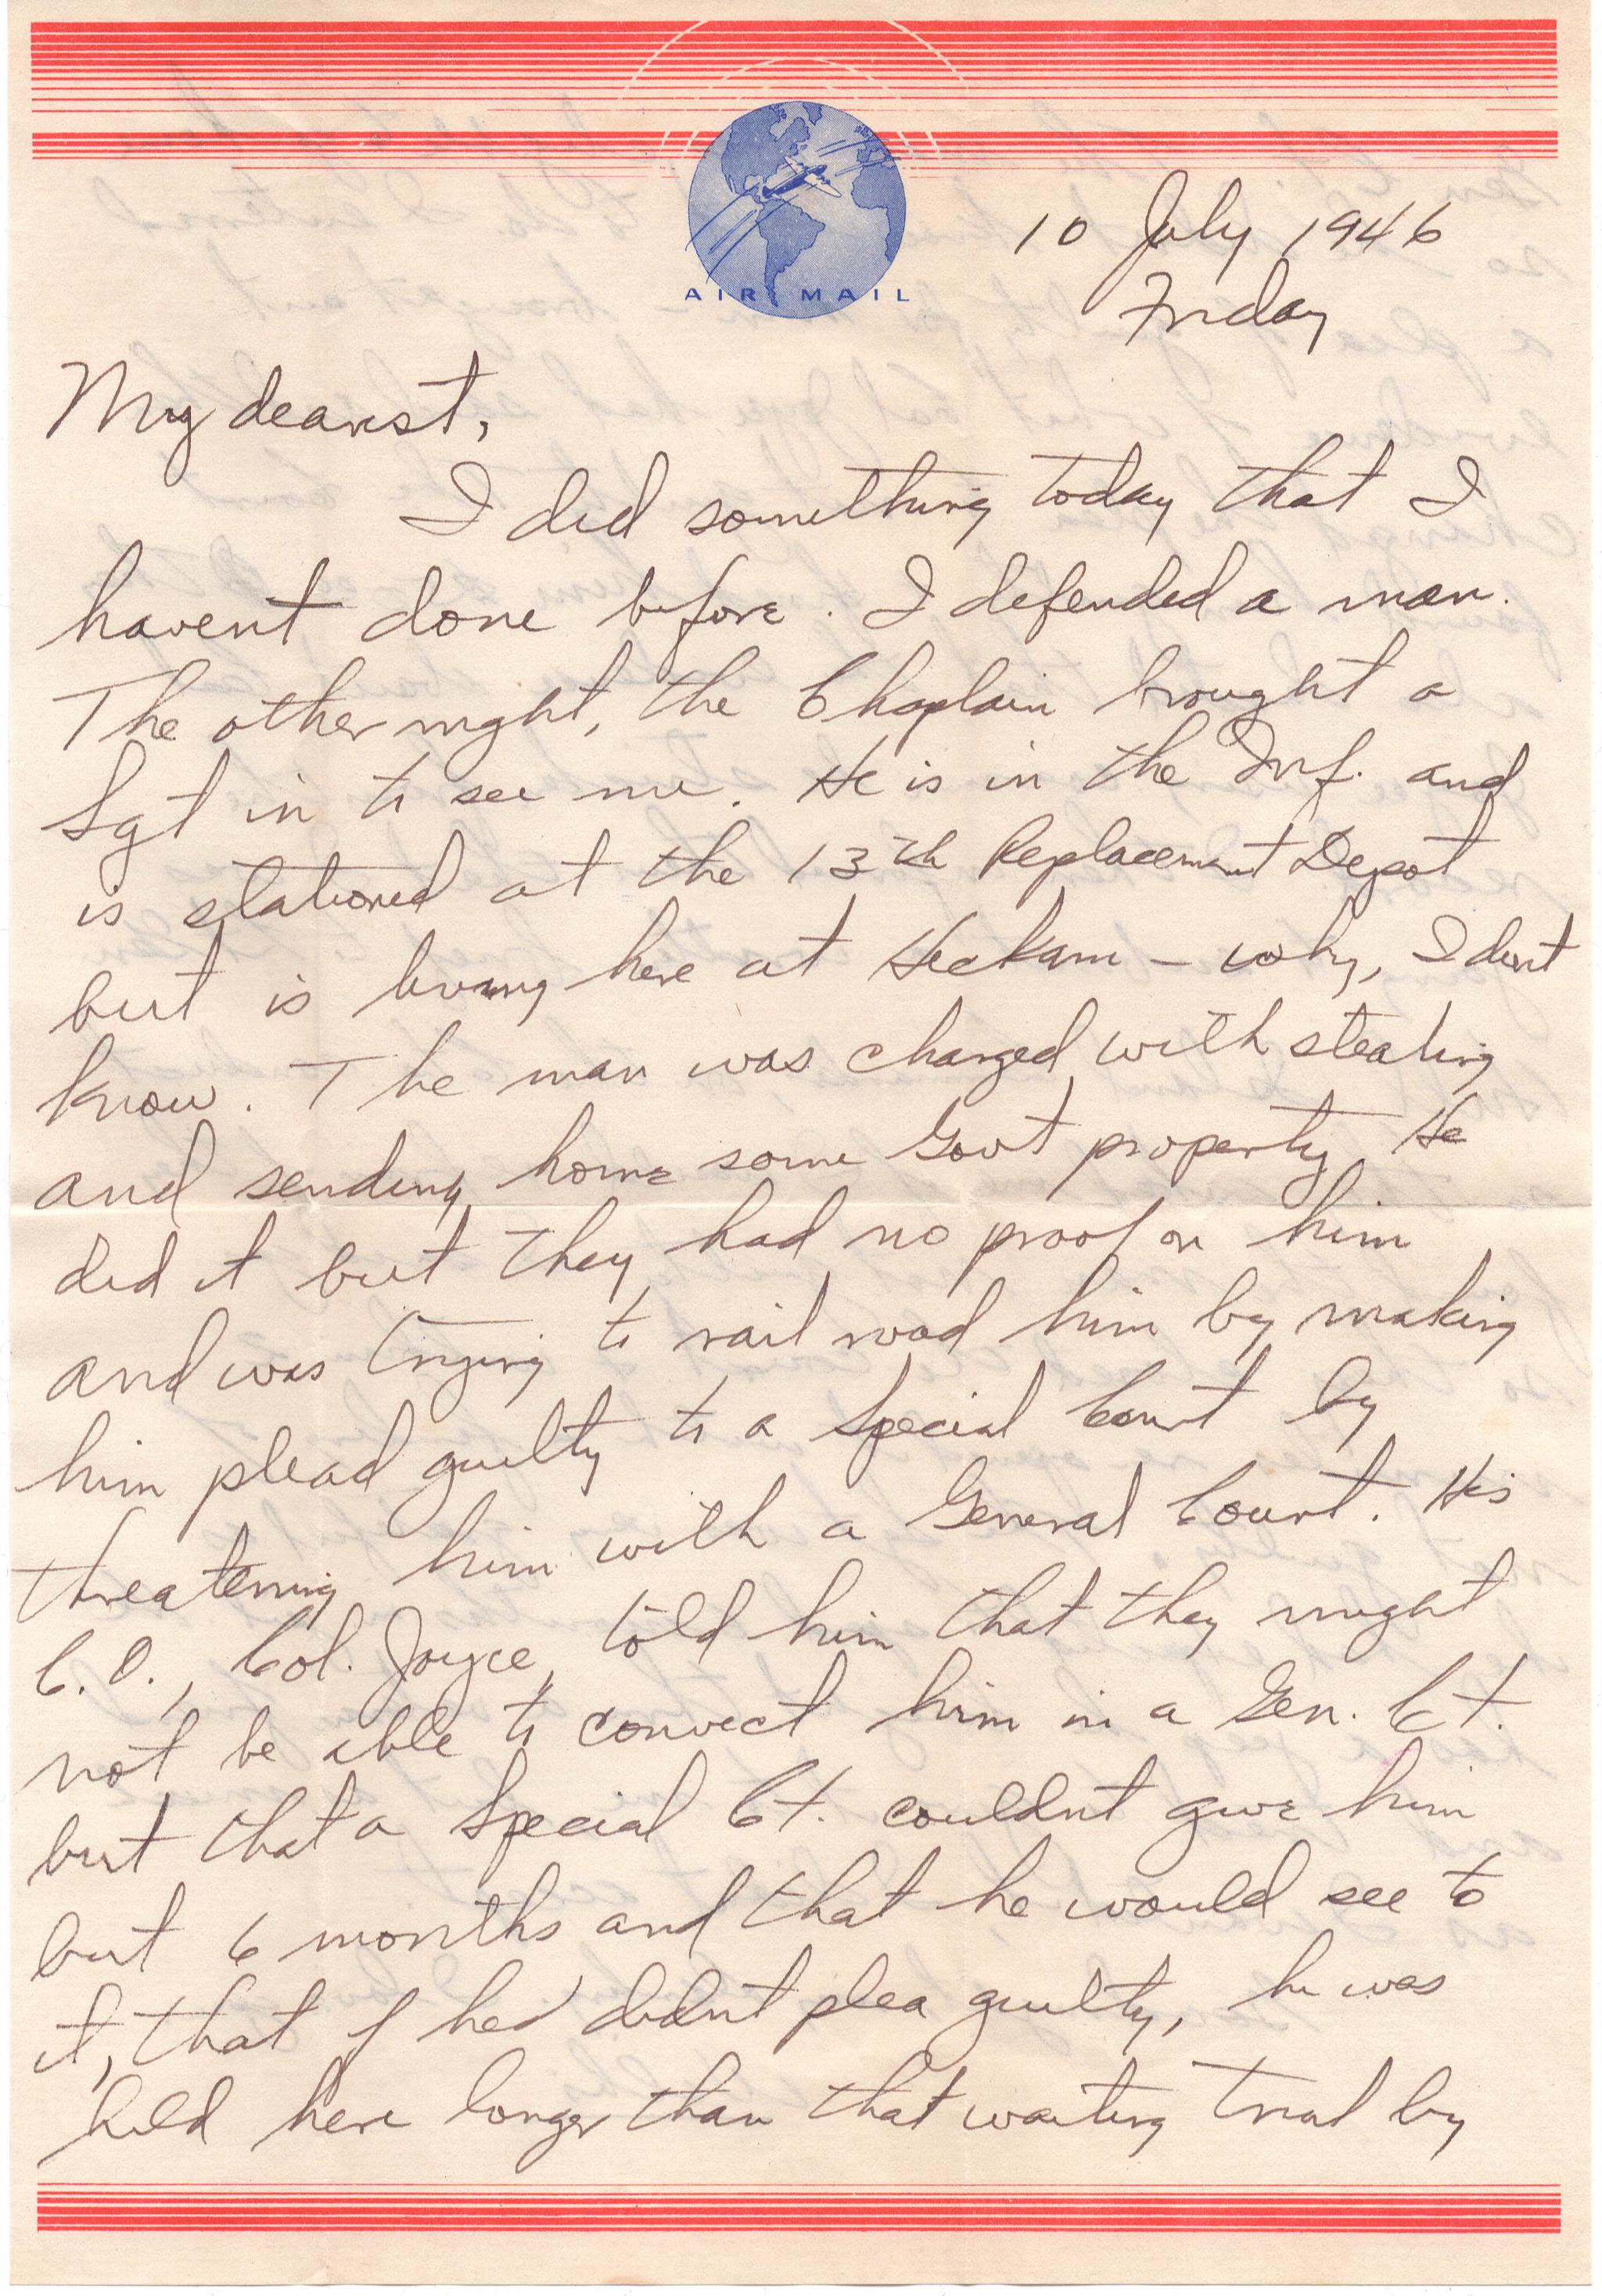 AIR MAIL
10 July 1946
Friday
My dearest,
I did something today that I
havent done before. I defended a man.
The other night, the Chaplain brought a
Sgt in to see me. He is in the Inf. and
is stationed at the 13th Replacement Depot
but is living here at Hickam - why, I dont
know. The man was charged with stealing
and sending home some Govt property He
did it but they had no proof on him
and was trying to rail road him by making
him plead guilty to a Special Court by
threatening him with a General Court. His
C.O., Col. Joyce, told him that they might
not be able to convict him in a Gen. Ct.
but that a Special Ct. couldnt give him
but 6 months and that he would see to
it, that if he didnt plea guilty, he was
held here longer than that waiting trial by